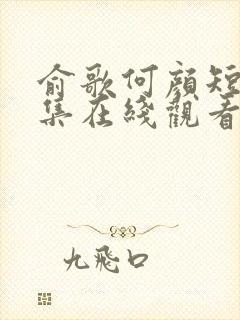 俞歌何顔短
集在綫觀看
九飛口